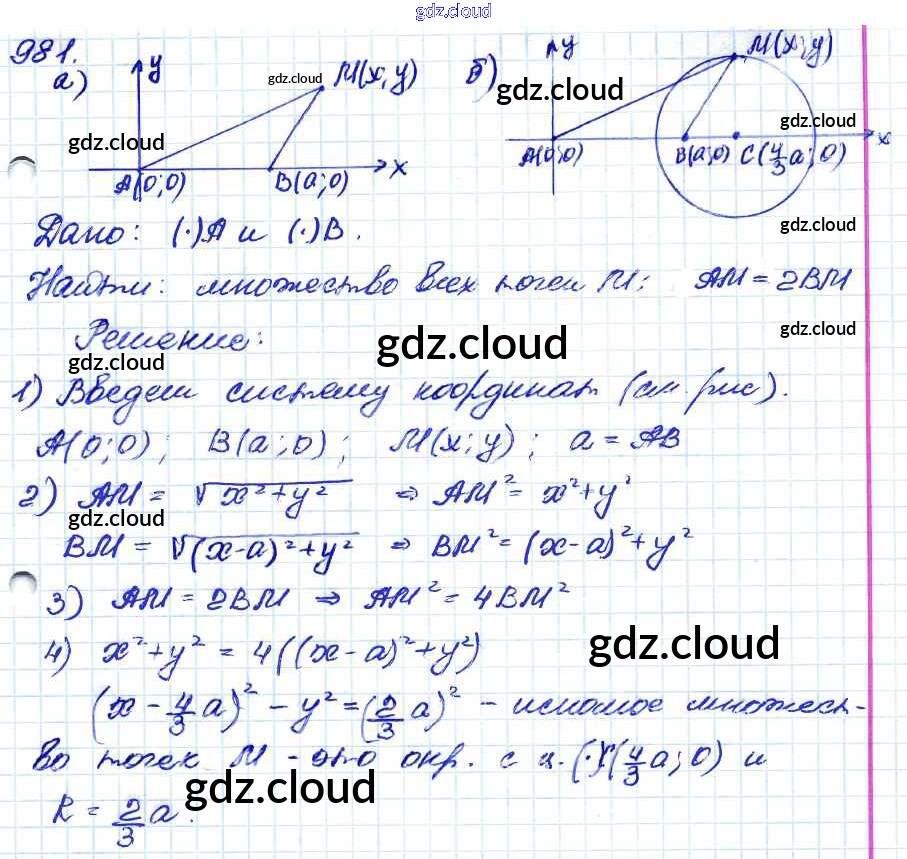 gdz.cloud
981.
а) y M(x; y) б) y M(x; y)
gdz.cloud gdz.cloud
gdz.cloud gdz.cloud
A(0;0) B(a;0) x A(0;0) B(a;0) C(4/3 a; 0) x
Дано: (·)A и (·)B.
gdz.cloud gdz.cloud
Найти: множество всех точек M: AM = 2BM
Решение:
gdz.cloud gdz.cloud gdz.cloud
1) Введем систему координат (см. рис).
A(0;0); B(a;0); M(x; y); a = AB
gdz.cloud gdz.cloud
2) AM = √x²+y² ⇒ AM² = x²+y²
gdz.cloud
BM = √(x-a)²+y² ⇒ BM² = (x-a)²+y²
3) AM = 2BM ⇒ AM² = 4BM²
4) x²+y² = 4((x-a)²+y²)
gdz.cloud
(x - 4/3 a)² - y² = (2/3 a)² - искомое множест-
во точек M - это окр. с ц. (·)(4/3 a; 0) и
R = 2/3 a.
gdz.cloud gdz.cloud